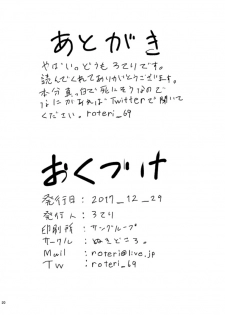 あとがき
やばい。どうも ろてりです。
読んでくれてありがとうございます。
本分真っ白で死にそうなので
なにかあればTwitterで聞いて
ください。roteri_69
おくづけ
発行日：2017_12_29
発行人：ろてり
印刷所：サングループ
サークル：ぬきどころ。
Mail：roteri@live.jp
Tw：roteri_69